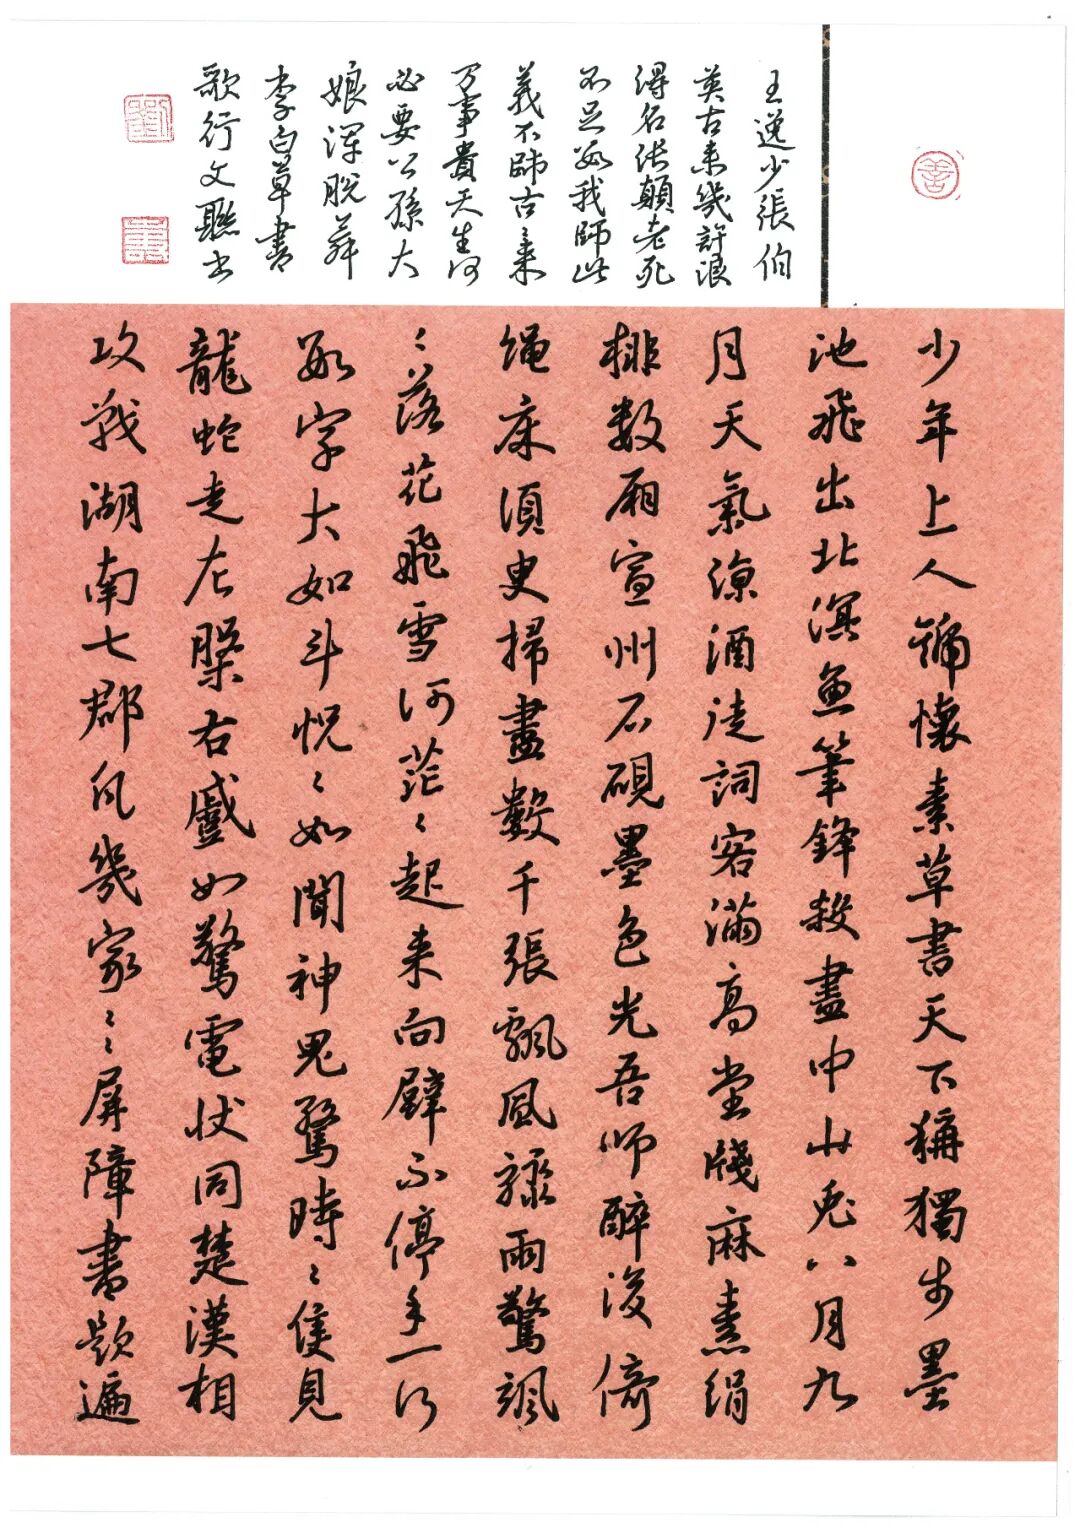 少年上人號懷素草書天下稱獨步墨
池飛出北溟魚筆鋒殺盡中山兔八月九
月天氣涼酒徒詞客滿高堂牋麻素絹
排数廂宣州石硯墨色光吾師醉後倚
繩床須臾掃盡數千張飄風驟雨驚颯
々落花飛雪何茫々起来向壁不停手一行
數字大如斗怳々如聞神鬼驚時々見
龍蛇走左盤右蹙如驚電狀同楚漢相
攻戰湖南七郡凡幾家々屏障書題遍
王逸少張伯
英古來幾許浪
得名張顛老死
不足數我師此
義不師古々來
万事貴天生何
必要公孫大
娘渾脫舞
李白草書
歌行文聯書
善